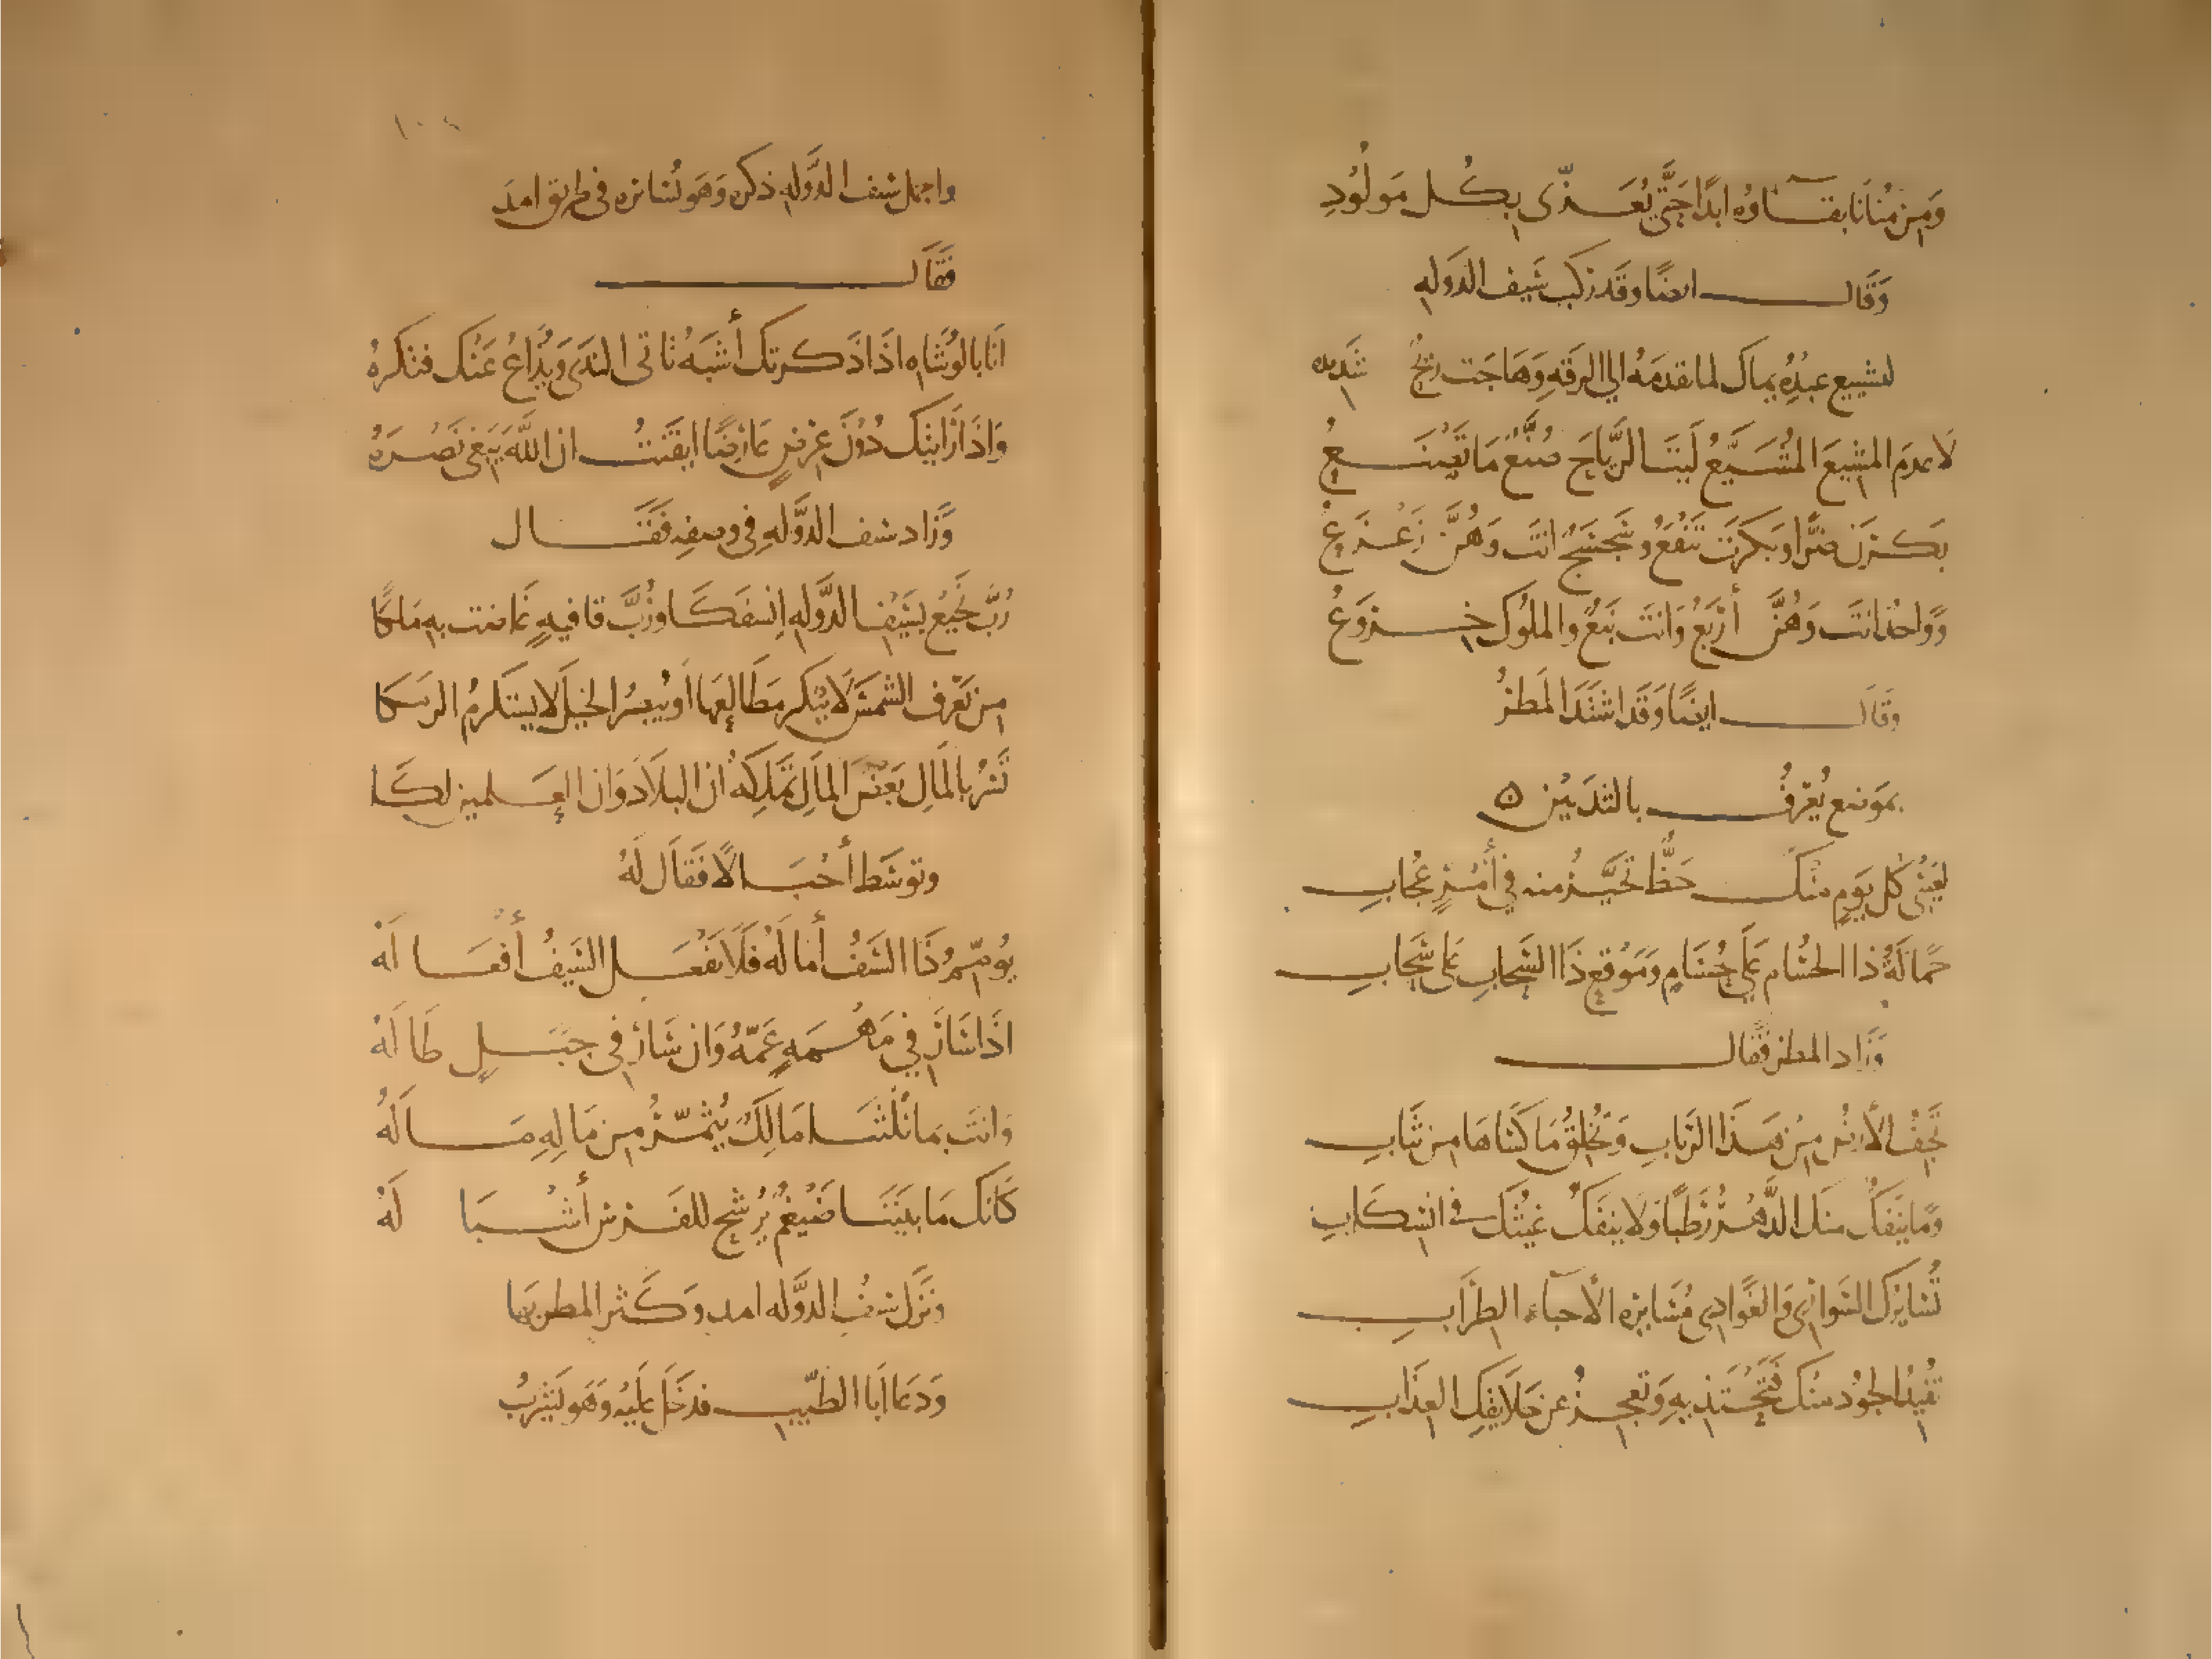 وَمِنْ مُنَانَا بقَــاؤُه ابدًا حَتَّى يُعَــزّى بِكُل مَوْلُودِ
وَقَالــــ ايضًا وقَد ركبَ سَيف الدَولهِ
لتشييع عبدُه يماك لما تقدمَهُ الي الرقه وَهَاجَت ريحٌ شديده
لَا عدمَ المشيعَ المُشَيَّعُ لَيتَ الرّيَاحَ صُنّعٌ مَا تَصْنَــعُ
بَكــرْنَ ضرًّا وَبَكَرْتَ تَنْفَعُ وسَجْسَجٌ انتَ وَهُنَّ زَعْــزَعُ
وَوَاحدٌ انتَ وَهُنَّ أرْبَعُ وَانتَ نَبْعٌ والملُوك خِــرْوَعُ
وقَالــــ ايضًا وَقَد اشتَدَ المَطرُ
بمَوضع يُعْرَفُـــ بالثدَيَيْن ه
لِعَيْنى كُل يَومٍ منكَـــ حَظٌّ تَحَيَّــرُ منه فِي أمْرٍ عُجابِـــ
حَمَالَةُ ذا الحُسَام عَلَي حُسَامٍ وَمَوْقعُ ذَا السَحابِ عَلى سَحَابِـــ
وَزَاد المطر فقَالــــ
تَجفُّ الأرْضُ مِنْ هَــذَا الرَبابِ وَتُخْلقُ مَا كَسَاهَا مِن ثيَابِـــ
وَمَا يَنْفَكُّ منكَ الدَّهْــرُ رَطْبًا وَلَا يَنفَكُّ غَيْثكَ فى انسِكَابِ
تُسَايرُكَ السَوَارِى وَالغَوَادِي مُسَايرَه الأحبآء الطرَابِـــ
تُفيدُ الجُوْد منكَ فَتَحْتَذيهِ وَتَعجــزُ عَن خَلَايقِكَ العِذَابِـــ
واجمل سيف الدَّولهِ ذكره وَهَو يُسَايره فى طريق امدَ
فَقَالــــ
انَا بالوُشَاه اذَا ذكَرتكَ أشْبَهُ تَاتى الندَى وَيُذَاعُ عَنْكَ فتكرهُ
وَاذَا رَايتكَ دُوْنَ عِرْضٍ عَارضًا ايقَنْتُـــ ان اللَّهَ يَبْغى نَصْــرَهُ
وَزَاد سيف الدَّولهِ فِى وصفِهِ فَقَــــال
رُبَّ نَجيْعٍ بسَيْفِ الدَّولهِ انسَفَكَا ورُبَّ قافيهٍ غَاضَت بهِ مَلِكًا
مِن يَعْرفُ الشمسَ لَا يُنْكر مَطَالِعَهَا أَو يُبْصرُ الخيلَ لا يستَكرمُ الرمَكَا
تَسُرُّ بالمَالِ بَعْضَ المَالِ تَمْلِكُهُ ان البلَادَ وَان العَــلمين لكَــا
وتوسَّط أجْبَــالًا فقَالَ لَهُ
يُؤمّمُ ذَا السَيْفُ أمَالَهُ فَلَا يَفْعَــل السَيفُ أفْعَــالَهُ
اذَا سَارَ فِي مَهْــمَهٍ عَمّهُ وَان سَارَ فِى جبَــلٍ طَالَهُ
وَانتَ بمَا نُلْتنَــا مَالِكٌ يُثَمّــرُ مِن مَالِهِ مَــالَهُ
كَانكَ مَا بَيْنَنَــا ضَيْغَمٌ يُرَشّحُ للفَــرْسِ أشْــبَالَهُ
وَنَزَلَ سَيْفُ الدَّوله امد وَكَثُر المطر بهَا
وَدَعَا ابَا الطَّيّبِـــ فدَخَلَ عَلَيْهِ وَهَو يَشْرَبُ